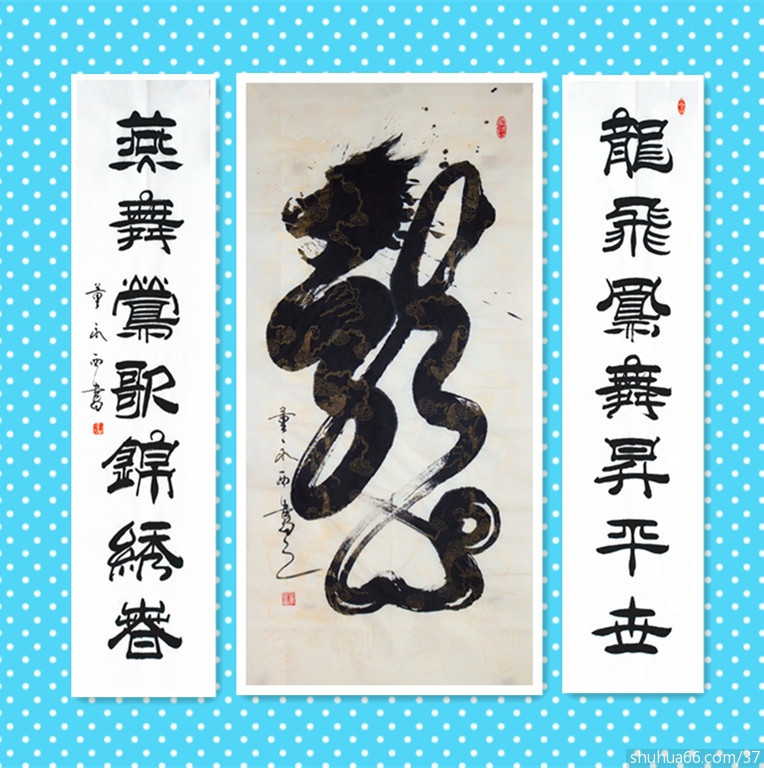 龍飛鳳舞昇平世
龍
董永西書
燕舞鶯歌錦綉春
董永西書
shuhua66.com/37